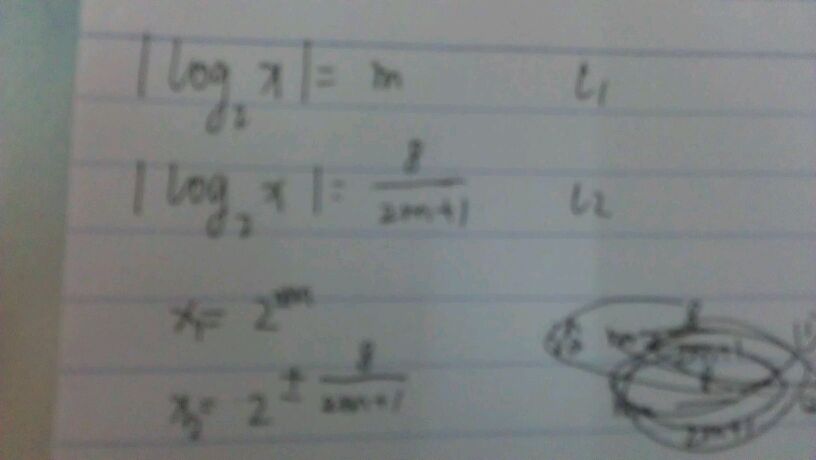 |log₂ x| = m l₁
|log₂ x| = 8/(2m+1) l₂
x₁ = 2^±m
x₂ = 2^±8/(2m+1)